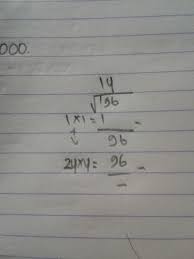 000.
14
√196
1×1=1 -
96
24×4= 96 -
-